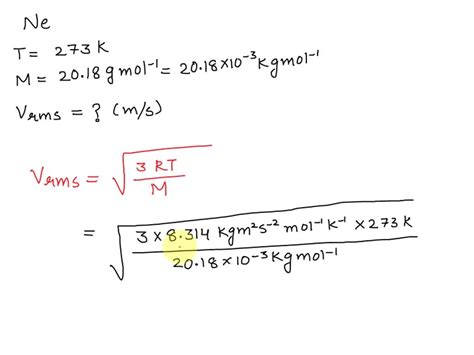 Ne
T = 273 K
M = 20.18 g mol⁻¹ = 20.18 × 10⁻³ Kg mol⁻¹
Vrms = ? (m/s)
Vrms = √(3 RT / M)
= √(3 × 8.314 Kg m² s⁻² mol⁻¹ K⁻¹ × 273 K / 20.18 × 10⁻³ Kg mol⁻¹)